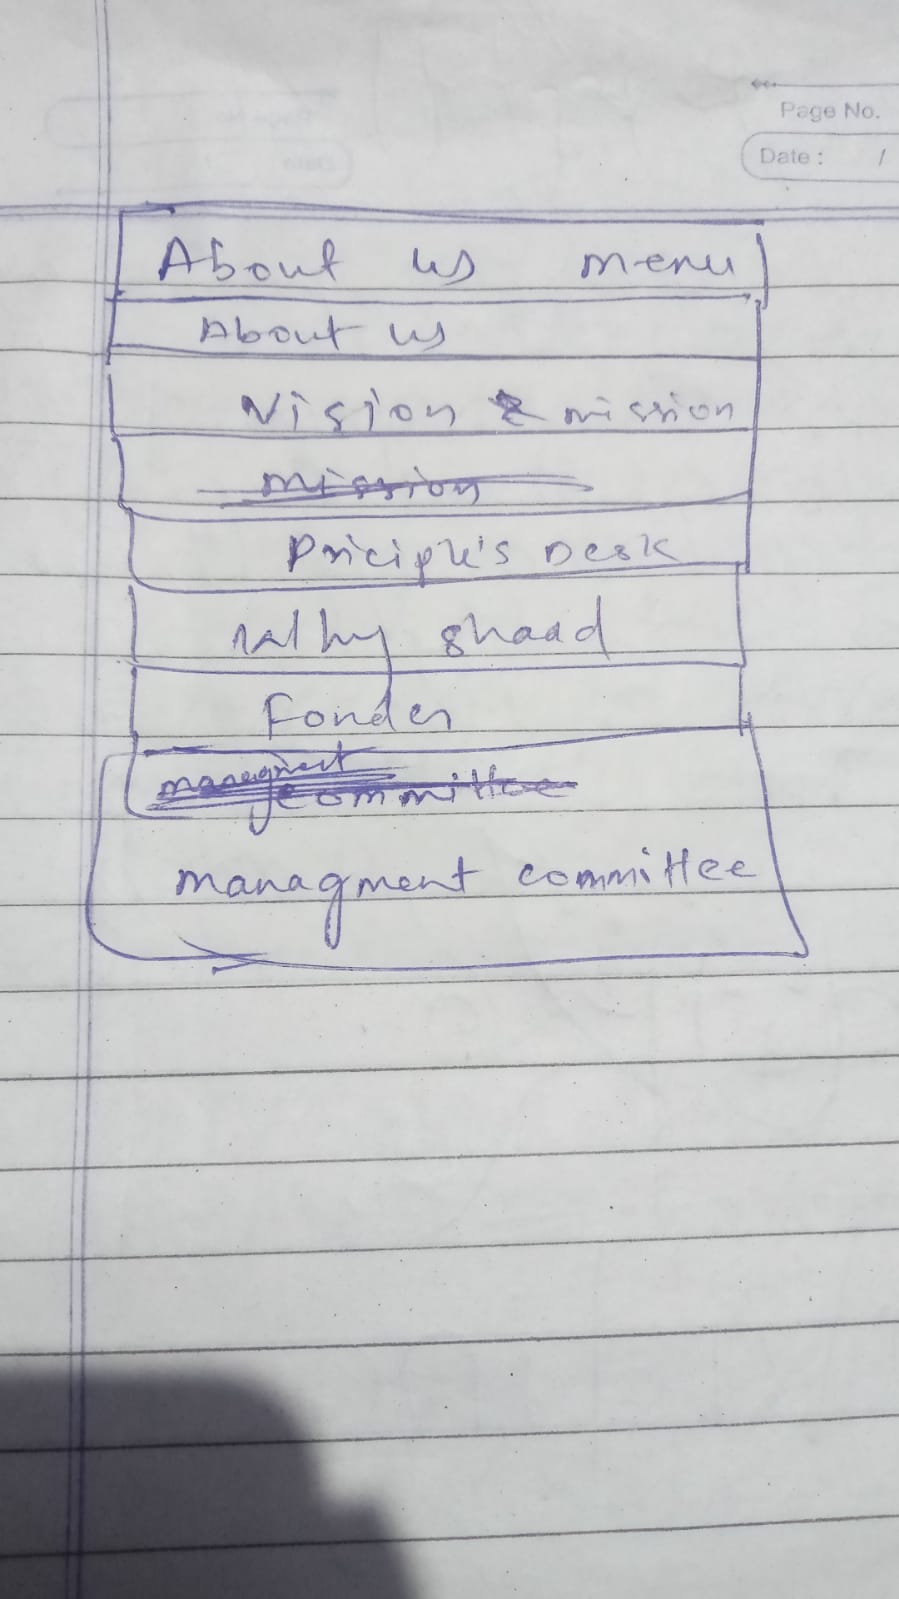 Page No.
Date : /
About us menu
About us
Vision & mission
mission
Priciple's Desk
Fonder
managment committee
managment committee